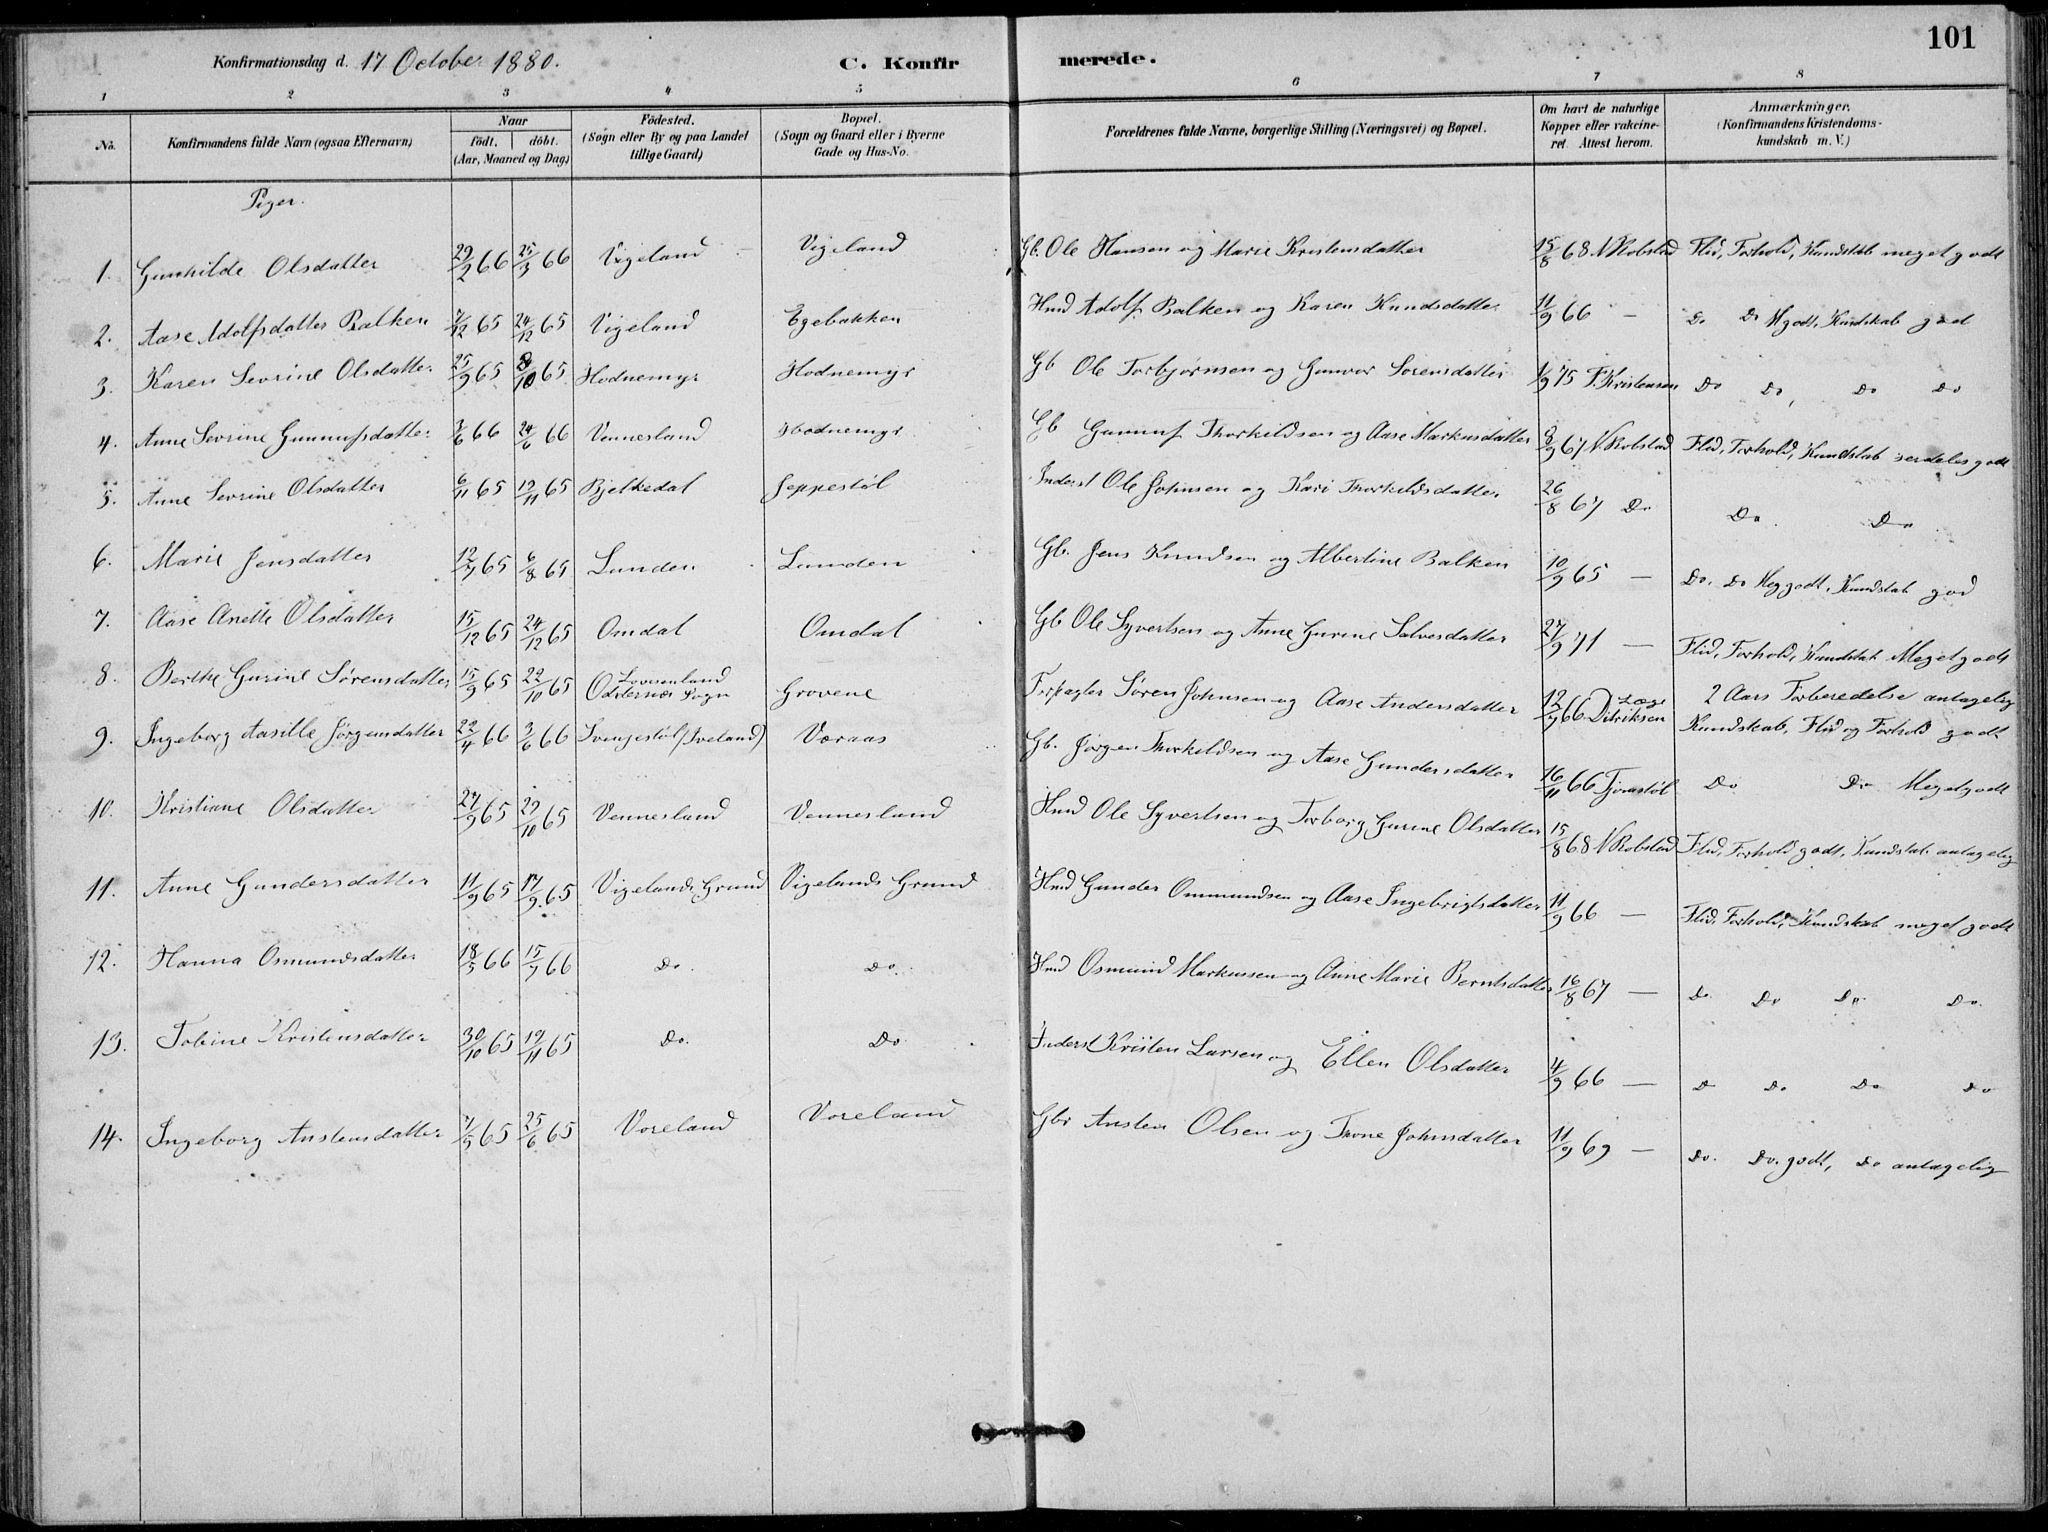 101
Konfirmationsdag d. 17 October 1880.
C. Konfirmerede.
1 2 3 4 5 6 7 8
No.
Konfirmandens fulde Navn (ogsaa Efternavn)
Naar
födt. döbt.
(Aar, Maaned og Dag)
Födested.
(Sogn eller By og paa Landet
tillige Gaard)
Bopæl.
(Sogn og Gaard eller i Byerne
Gade og Hus-No.
Forældrenes fulde Navne, borgerlige Stilling (Næringsvei) og Bopæl.
Om havt de naturlige
Kopper eller vakcine-
ret. Attest herom.
Anmærkninger.
(Konfirmandens Kristendoms-
kundskab m. V.)
Piger.
1. Gunhilde Olsdatter 29/2 66 25/3 66 Vigeland Vigeland Gb. Ole Hansen og Marie Kristensdatter 15/8 68 N Robstad Flid, Forhold, Kundskab meget godt
2. Aase Adolfsdatter Balken 7/12 65 24/12 65 Vigeland Egebakken Hmd Adolf Balken og Karen Knudsdatter 11/9 66 — Do Do M godt, Kundskab god
3. Karen Sevrine Olsdatter 25/9 65 8/10 65 Hodnemyr Hodnemyr Gb Ole Torbjørnsen og Gunvor Sørensdatter 1/9 75 T. Kristensen Do Do, Do Do
4. Anne Sevrine Gunnufsdatter 3/6 66 24/6 66 Vennesland Hodnemyr Gb Gunnuf Thorkildsen og Aase Markusdatter 3/9 67 N. Robstad Flid, Forhold, Kundskab serdeles godt
5. Anne Sevrine Olsdatter 6/11 65 19/11 65 Bjelkedal Jeppestøl Inderst Ole Johnsen og Kari Thorkildsdatter 26/8 67 Do Do. Do
6. Marie Jensdatter 12/7 65 6/8 65 Lunden Lunden Gb. Jens Knudsen og Albertine Balken 10/9 65 — Do. Do Meg godt, Kundskab god
7. Aase Anette Olsdatter 15/12 65 24/12 65 Omdal Omdal Gb Ole Syvertsen og Anne Gurine Salvesdatter 27/9 71 — Flid, Forhold, Kundskab Meget godt
8. Berthe Gurine Sørensdatter 15/9 65 22/10 65 Odderness Sogn Grovene Forpagter Søren Johnsen og Aase Andersdatter 12/9 66 Læge Ditriksen 2 Aars Forberedelse antagelig
Kundskab, Flid og Forhold godt
9. Ingeborg Aasille Jörgensdatter 22/4 66 3/6 66 Svengestøl (Iveland) Væraas Gb. Jörgen Thorkildsen og Aase Gundersdatter 16/11 66 Tjomstøl Do Do Meget godt
10. Kristiane Olsdatter 27/9 65 29/10 65 Vennesland Vennesland Hmd Ole Syvertsen og Torborg Gurine Olsdatter 15/8 68 N Robstad Flid, Forhold godt, Kundskab antagelig
11. Anne Gundersdatter 11/9 65 17/9 65 Vigelands Grund Vigelands Grund Hmd Gunder Ommundsen og Aase Ingebrigtsdatter 11/9 66 — Flid, Forhold, Kundskab meget godt
12. Hanna Osmundsdatter 18/5 66 15/7 66 Do. Do. Hmd Osmund Markussen og Anne Marie Berntsdatter 16/8 67 — Do. Do Do Do.
13. Tobine Kristensdatter 30/10 65 19/11 65 Do. Do Inderst Kristen Larsen og Ellen Olsdatter 4/9 66 — D Do Do Do
14. Ingeborg Anstensdatter 7/5 65 25/6 65 Voreland Voreland Gbr Ansten Olsen og Trone Johnsdatter 11/9 69 — Do. Do. godt, Do antagelig